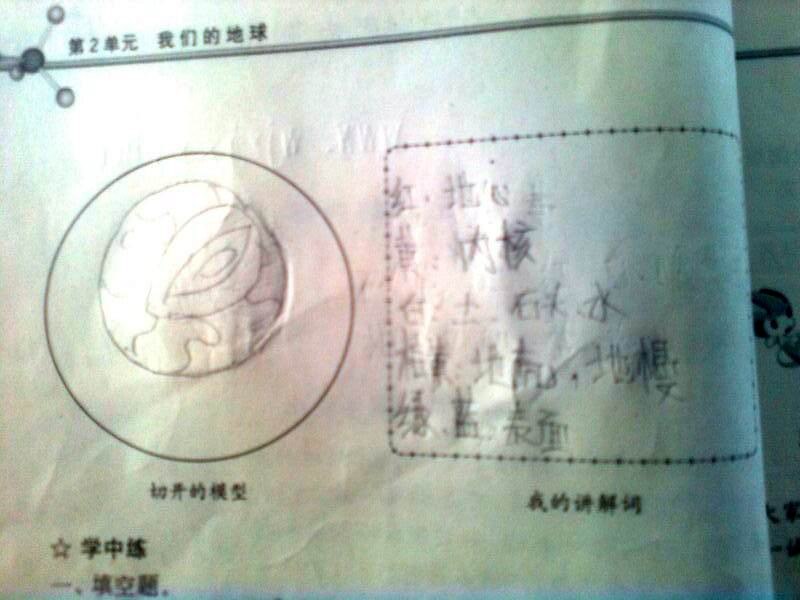 第2单元 我们的地球
红:地心
黄:内核
白:土、石头、水
地壳、地幔
绿、蓝:表面
切开的模型
我的讲解词
☆ 学中练
一、填空题。
大家